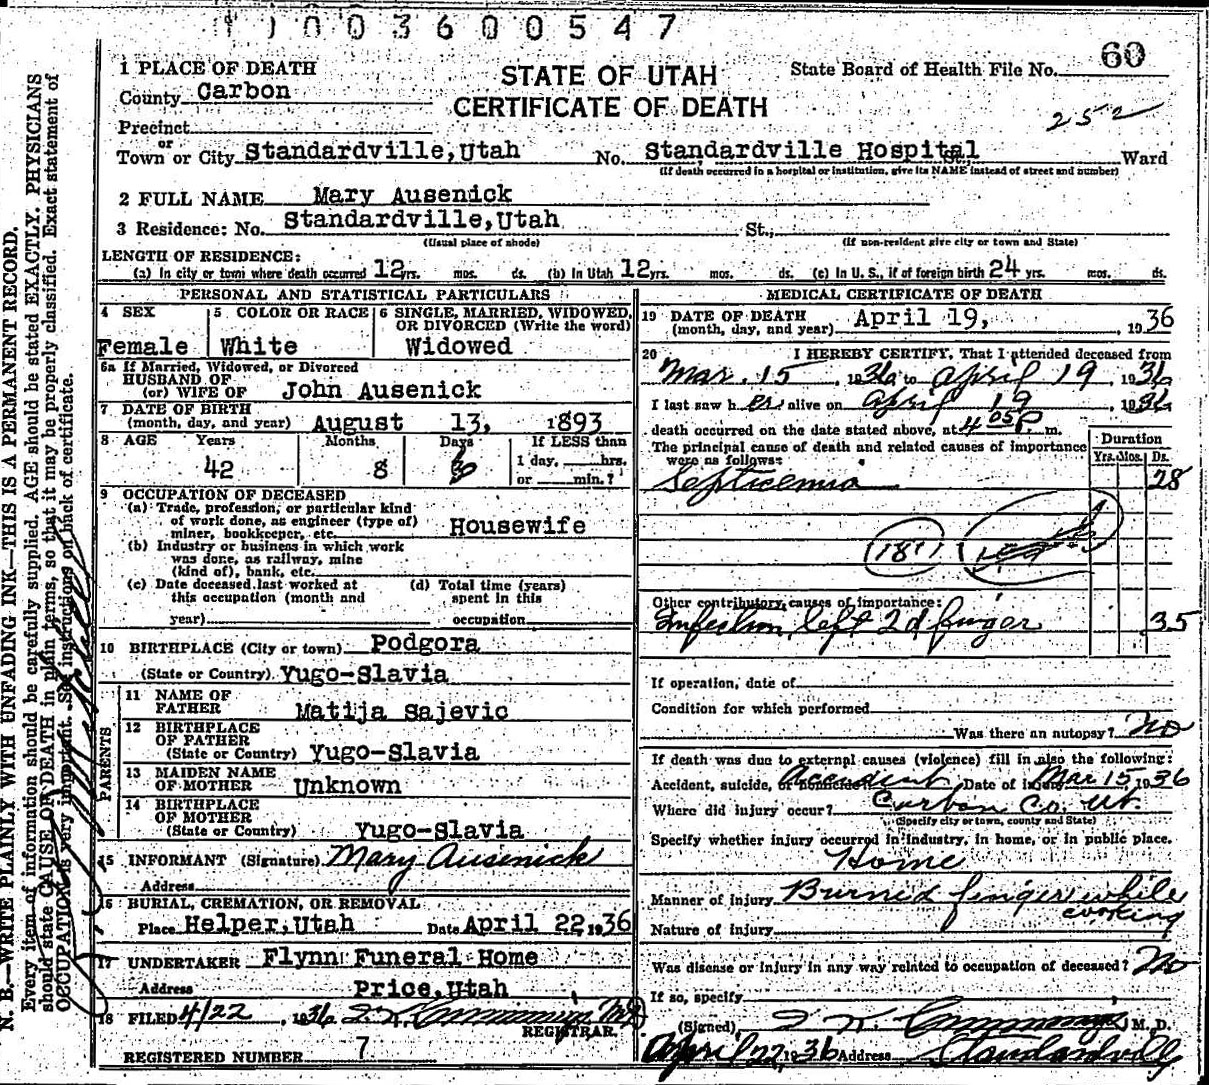 1003600547
1 PLACE OF DEATH
STATE OF UTAH
CERTIFICATE OF DEATH
State Board of Health File No. 60
County Carbon
252
Precinct
or
Town or City Standardville,Utah No. Standardville Hospital St., Ward
(If death occurred in a hospital or institution, give its NAME instead of street and number)
2 FULL NAME Mary Ausenick
3 Residence: No. Standardville,Utah St.,
(Usual place of abode) (If non-resident give city or town and State)
LENGTH OF RESIDENCE:
(a) In city or town where death occurred 12 yrs. mos. ds. (b) In Utah 12 yrs. mos. ds. (c) In U. S., if of foreign birth 24 yrs. mos. ds.
PERSONAL AND STATISTICAL PARTICULARS
4 SEX 5 COLOR OR RACE 6 SINGLE, MARRIED, WIDOWED,
OR DIVORCED (Write the word)
Female White Widowed
6a If Married, Widowed, or Divorced
HUSBAND OF
(or) WIFE OF John Ausenick
7 DATE OF BIRTH
(month, day, and year) August 13, 1893
8 AGE Years Months Days If LESS than
1 day, hrs.
or min.?
42 8
9 OCCUPATION OF DECEASED
(a) Trade, profession, or particular kind
of work done, as engineer (type of)
miner, bookkeeper, etc. Housewife
(b) Industry or business in which work
was done, as railway, mine
(kind of), bank, etc.
(c) Date deceased last worked at (d) Total time (years)
this occupation (month and spent in this
year) occupation
10 BIRTHPLACE (City or town) Podgora
(State or Country) Yugo-Slavia
PARENTS
11 NAME OF
FATHER Matija Sajevic
12 BIRTHPLACE
OF FATHER
(State or Country) Yugo-Slavia
13 MAIDEN NAME
OF MOTHER Unknown
14 BIRTHPLACE
OF MOTHER
(State or Country) Yugo-Slavia
15 INFORMANT (Signature) Mary Ausenick
Address
16 BURIAL, CREMATION, OR REMOVAL
Place Helper,Utah Date April 22, 1936
17 UNDERTAKER Flynn Funeral Home
Address Price,Utah
18 FILED 4/22, 1936 MD
REGISTRAR.
REGISTERED NUMBER 7
MEDICAL CERTIFICATE OF DEATH
19 DATE OF DEATH
(month, day, and year) April 19, 1936
20 I HEREBY CERTIFY, That I attended deceased from
Mar. 15, 1936 to April 19, 1936
I last saw her alive on April 19, 1936
death occurred on the date stated above, at 4 05 P m.
The principal cause of death and related causes of importance
were as follows:
Duration
Yrs. Mos. Ds.
Septicemia 28
181
Other contributory causes of importance:
Infection left 2d finger 35
If operation, date of
Condition for which performed
Was there an autopsy? No
If death was due to external causes (violence) fill in also the following:
Accident, suicide, or homicide Accident Date of injury Mar 15, 1936
Where did injury occur? Carbon Co. Ut.
(Specify city or town, county and State)
Specify whether injury occurred in industry, in home, or in public place.
Home
Manner of injury Burned finger while
cooking
Nature of injury
Was disease or injury in any way related to occupation of deceased? No
If so, specify
(Signed) M. D.
April 22, 1936 Address Standardville
N. B.—WRITE PLAINLY WITH UNFADING INK—THIS IS A PERMANENT RECORD.
Every item of information should be carefully supplied. AGE should be stated EXACTLY. PHYSICIANS
should state CAUSE OF DEATH in plain terms, so that it may be properly classified. Exact statement of
OCCUPATION is very important. See instructions on back of certificate.